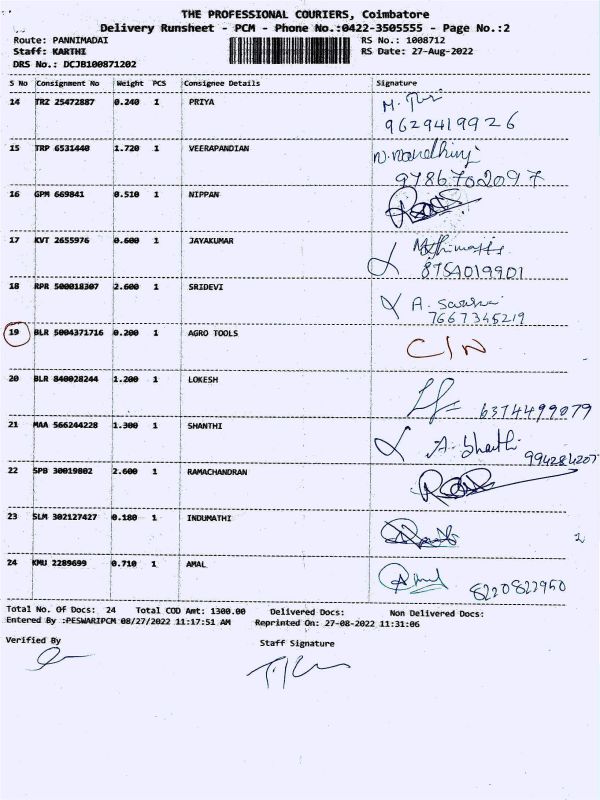 THE PROFESSIONAL COURIERS, Coimbatore
Delivery Runsheet - PCM - Phone No.:0422-3505555 - Page No.:2
Route: PANNIMADAI RS No.: 1008712
Staff: KARTHI RS Date: 27-Aug-2022
DRS No.: DCJB100871202
S No Consignment No Weight PCS Consignee Details Signature
14 TRZ 25472887 0.240 1 PRIYA
9629419926
15 TRP 6531440 1.720 1 VEERAPANDIAN
9786702097
16 GPM 669841 0.510 1 NIPPAN
17 KVT 2655976 0.600 1 JAYAKUMAR
8754019901
18 RPR 500018307 2.600 1 SRIDEVI A.
7667345219
19 BLR 5004371716 0.200 1 AGRO TOOLS C/N
20 BLR 840028244 1.200 1 LOKESH
6374499079
21 MAA 566244228 1.300 1 SHANTHI A.
22 SPB 30019802 2.600 1 RAMACHANDRAN
23 SLM 302127427 0.180 1 INDUMATHI
24 KMU 2289699 0.710 1 AMAL
8220822950
Total No. Of Docs: 24 Total COD Amt: 1300.00 Delivered Docs: Non Delivered Docs:
Entered By :PESWARIPCM 08/27/2022 11:17:51 AM Reprinted On: 27-08-2022 11:31:06
Verified By Staff Signature